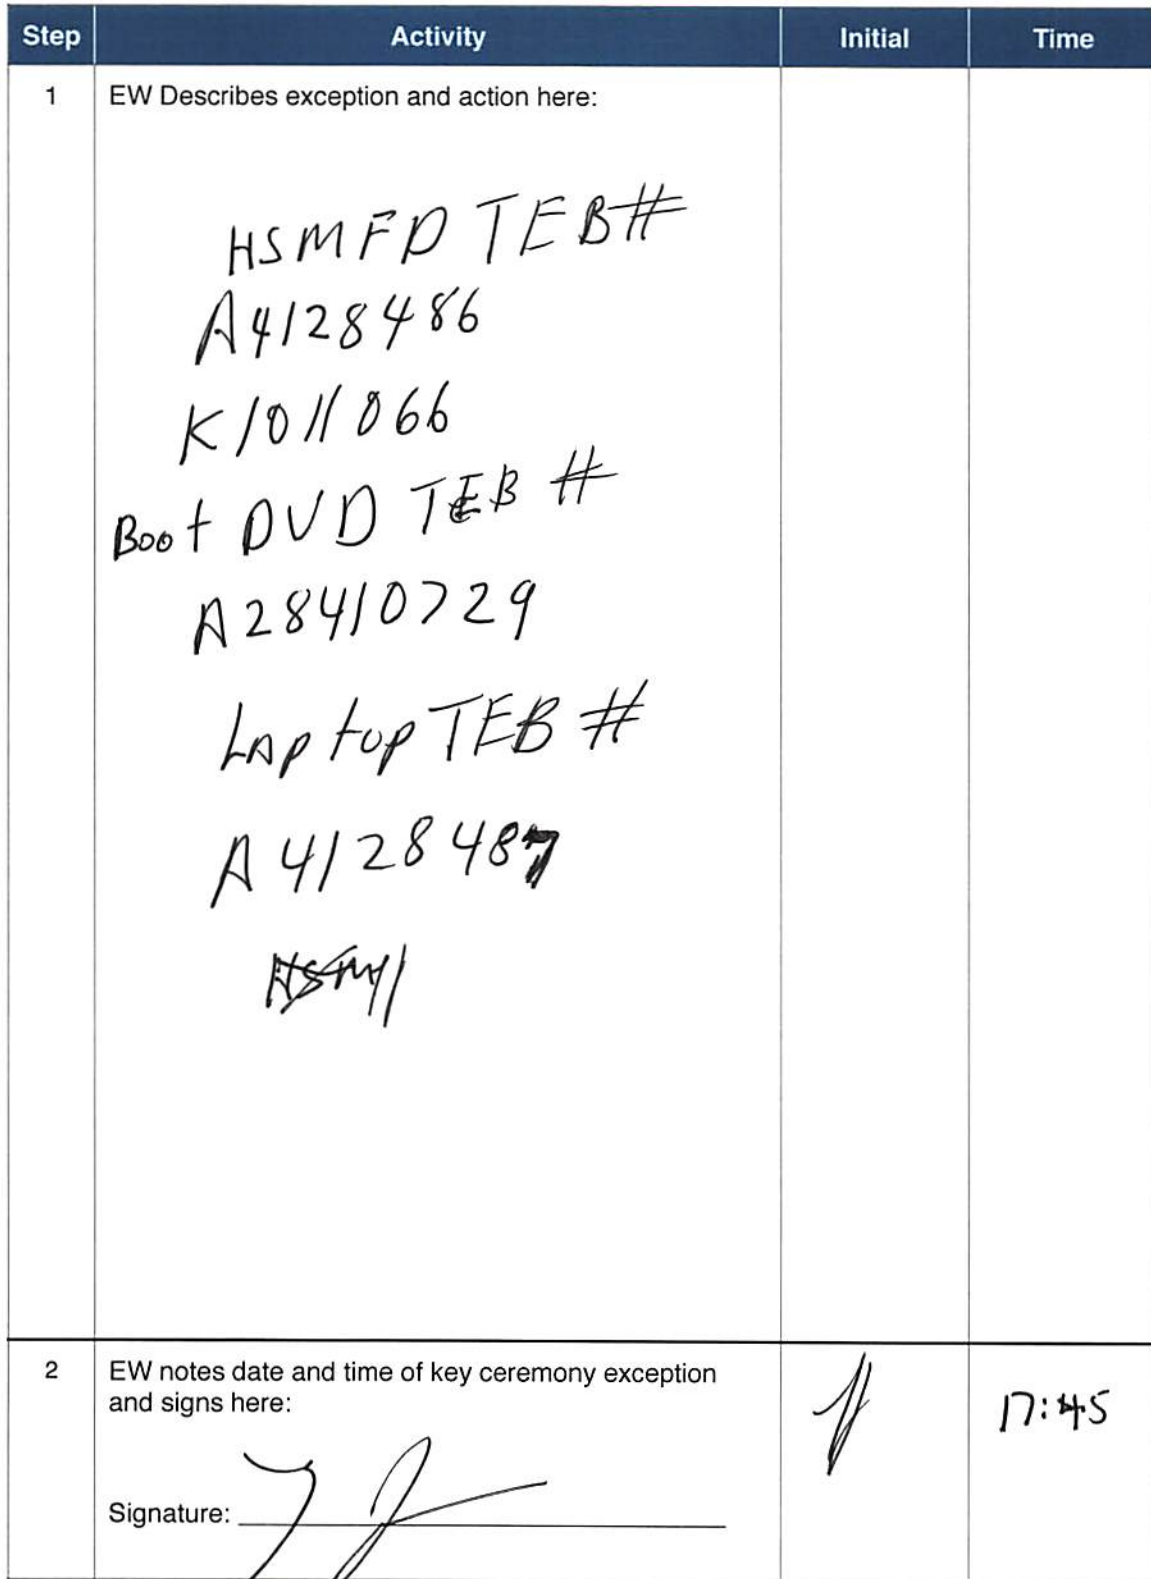 Step Activity Initial Time
1 EW Describes exception and action here:
HSMFD TEB#
A4128486
K1011066
Boot DVD TEB #
A28410729
Laptop TEB #
A4128487
HSM
2 EW notes date and time of key ceremony exception
and signs here:
17:45
Signature: